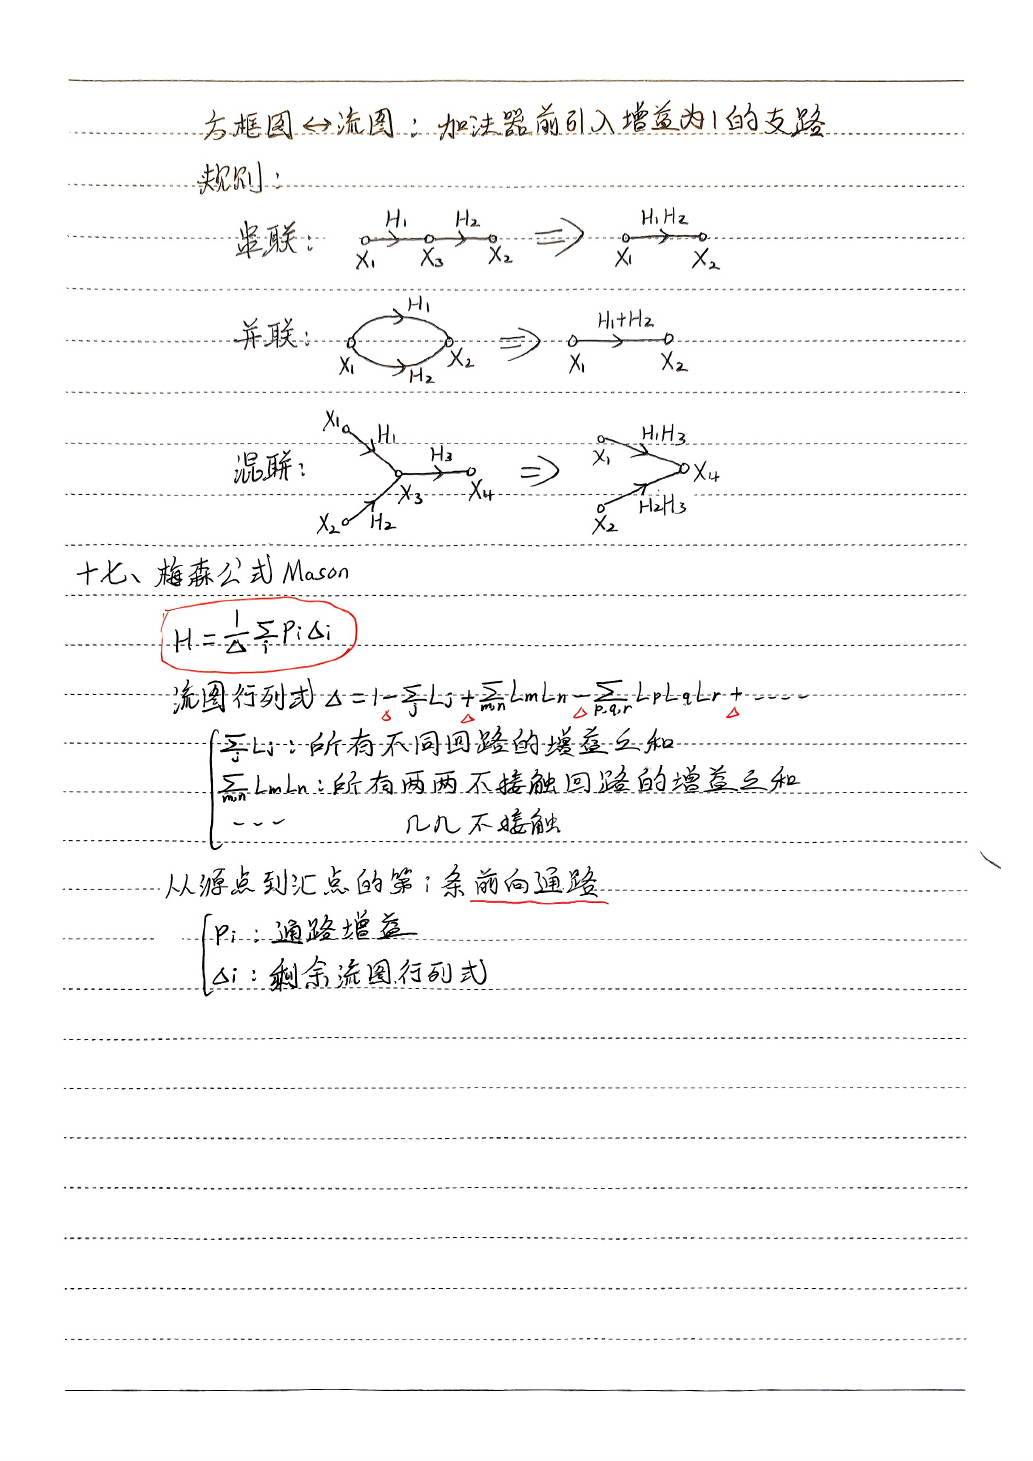 方框图↔流图：加法器前引入增益为1的支路
规则：
串联： X₁ H₁ X₃ H₂ X₂ ⇒ X₁ H₁H₂ X₂
并联： X₁ H₁ H₂ X₂ ⇒ X₁ H₁+H₂ X₂
混联： X₁ H₁ X₂ H₂ X₃ H₃ X₄ ⇒ X₁ H₁H₃ X₂ H₂H₃ X₄
十七、梅森公式 Mason
H = 1/Δ Σᵢ Pi Δi
流图行列式 Δ = 1 - Σⱼ Lj + Σₘ,ₙ LmLn - Σp,q,r LpLqLr + ----
Σⱼ Lj：所有不同回路的增益之和
Σₘ,ₙ LmLn：所有两两不接触回路的增益之和
--- 几几不接触
从源点到汇点的第i条前向通路
Pi：通路增益
Δi：剩余流图行列式